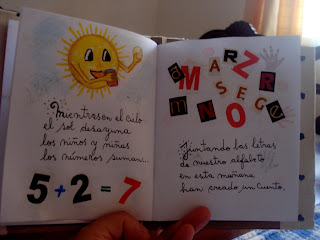 Mientras en el cielo
el sol desayuna
los niños y niñas
los números suman...
5+2=7
a M A R Z R
S E G E
m N O
Juntando las letras
de nuestro alfabeto
en esta mañana
han creado un cuento.